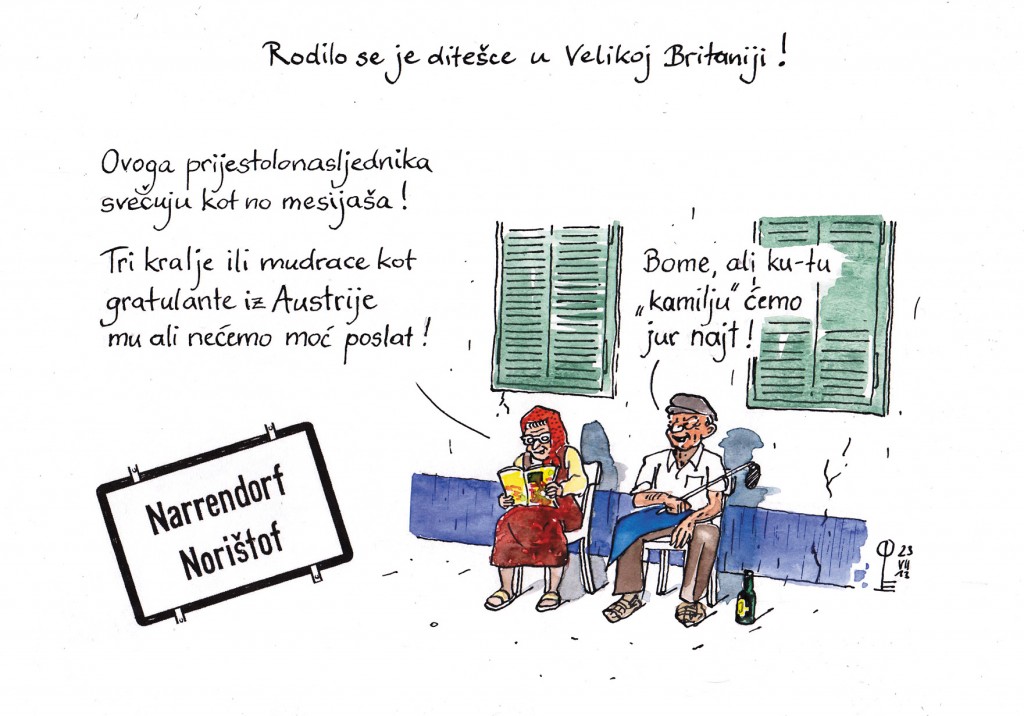 Rodilo se je ditešce u Velikoj Britaniji!
Ovoga prijestolonasljednika
svečuju kot no mesijaša!
Tri kralje ili mudrace kot
gratulante iz Austrije
mu ali nećemo moć poslat!
Bome, ali ku-tu
„kamilju“ ćemo
jur najt!
Narrendorf
Norištof
23
VII
13